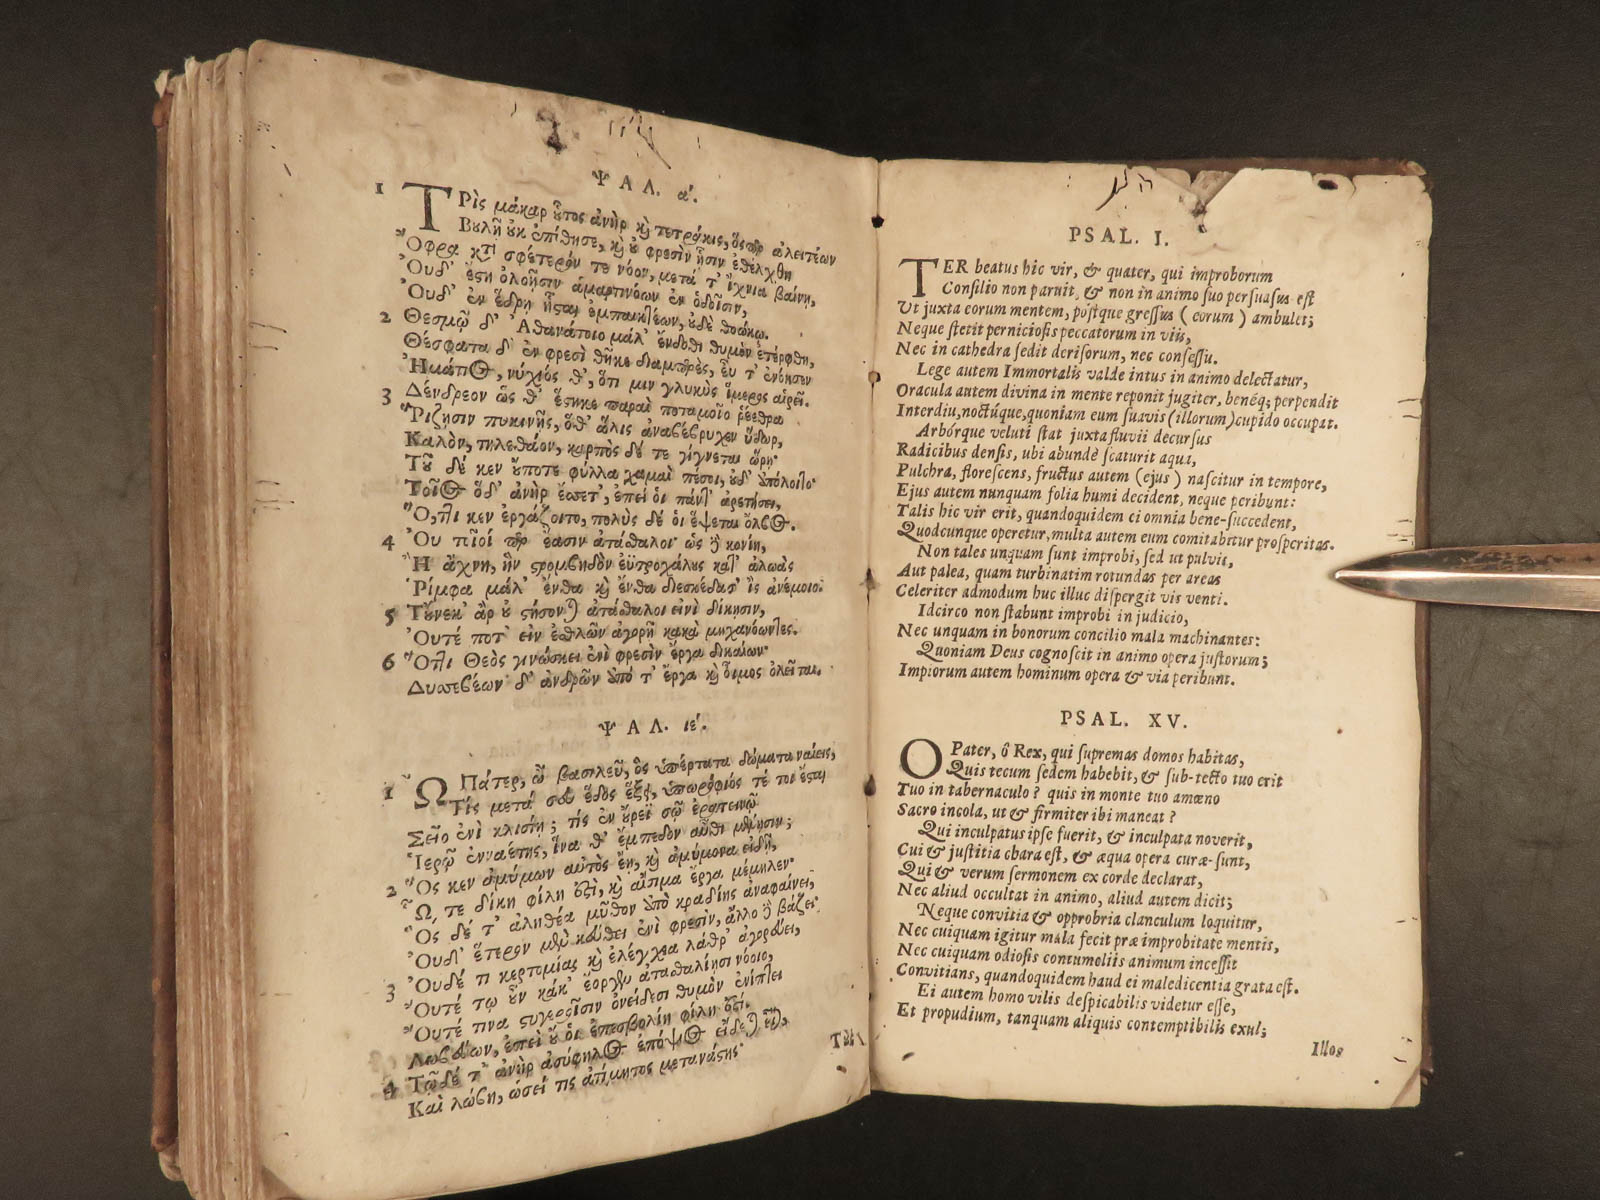 ΨΑΛ. α΄.
1 ΤΡὶς μάκαρ οὗτος ἀνὴρ καὶ τετράκις, ὅσπερ ἀλειτέων
Βουλῇ οὐκ ἐπίθησε, καὶ οὐ φρεσὶν ᾗσιν ἐθέλχθη
Ὄφρα κατὰ σφέτερόν τε νόον, μετά τ' ἴχνια βαίνῃ,
Οὐδ' ἔστη ὀλοῇσιν ἁμαρτινόων ἐν ὁδοῖσιν,
Οὐδ' ἐν ἕδρῃ ἧσται ἐμπαικτέων, οὐδὲ θοώκῳ.
2 Θεσμῷ δ' Ἀθανάτοιο μάλ' ἔνδοθι θυμὸν ἐτέρφθη,
Θέσφατα δ' ἐν φρεσὶ θῆκε διαμπερὲς, εὖ τ' ἐνόησεν
Ἠμάτιος, νύχιός θ', ὅτι μιν γλυκὺς ἵμερος αἱρεῖ.
3 Δένδρεον ὥς θ' ἕστηκε παραὶ ποταμοῖο ῥέεθρα
Ῥίζησιν πυκινῇς, ὅθ' ἅλις ἀναβέβρυχεν ὕδωρ,
Καλὸν, τηλεθάον, καρπὸς δέ τε γίγνεται ὥρῃ·
Τοῦ δέ κεν οὔποτε φύλλα χαμαὶ πέσοι, οὐδ' ἀπόλοιτο·
Τοῖος ὅδ' ἀνὴρ ἔσσετ', ἐπεί οἱ πάντ' ἀρετήσει,
Ὅ,τι κεν ἐργάζοιτο, πολὺς δέ οἱ ἕψεται ὄλβος.
4 Οὐ τοῖοί περ ἔασιν ἀτάσθαλοι· ὡς δὲ κονίη,
Ἢ ἄχνη, ἣν στρομβηδὸν ἐϋτροχάλους κατ' ἀλωὰς
Ῥίμφα μάλ' ἔνθα καὶ ἔνθα διεσκέδασ' ἲς ἀνέμοιο·
5 Τοὔνεκ' ἄρ' οὐ στήσονται ἀτάσθαλοι εἰνὶ δίκησιν,
Οὔτέ ποτ' εἰν ἐσθλῶν ἀγορῇ κακὰ μηχανόωντες.
6 Ὅττι Θεὸς γινώσκει ἐνὶ φρεσὶν ἔργα δικαίων·
Δυσσεβέων δ' ἀνδρῶν ὑπό τ' ἔργα καὶ οἶμος ὀλεῖται.
ΨΑΛ. ιε΄.
1 Ὦ Πάτερ, ὦ βασιλεῦ, ὃς ὑπέρτατα δώματα ναίεις,
Τίς μετὰ σοῦ ἕδος ἕξει, ὑπωρόφιός τέ τοι ἔσται
Σεῖο ἐνὶ κλισίῃ; τίς ἐν οὔρεϊ σῷ ἐρατεινῷ
Ἱερῷ ἐνναέτης, ἵνα θ' ἔμπεδον αὖθι μένῃσιν;
2 Ὅς κεν ἀμύμων αὐτὸς ἔῃ, καὶ ἀμύμονα εἰδῇ,
Ὧ, τε δίκη φίλη ἐστὶ, καὶ αἴσιμα ἔργα μέμηλεν·
Ὅς δέ τ' ἀληθέα μῦθον ὑπὸ κραδίης ἀναφαίνει,
Οὐδ' ἕτερον μὲν κεύθει ἐνὶ φρεσὶν, ἄλλο δὲ βάζει·
3 Οὐδέ τι κερτομίας καὶ ἐλέγχεα λάθρ' ἀγορεύει,
Οὔτέ τῳ οὖν κάκ' ἔοργεν ἀτασθαλίῃσι νόοιο,
Οὔτέ τινα στυγεροῖσιν ὀνείδεσι θυμὸν ἐνίπτει
Λωβεύων, ἐπεὶ οὔ οἱ ἐπεσβολίη φίλη ἐστί.
4 Τῷ δέ τ' ἀνὴρ ἀσύφηλος ἐπόψιος εἴδεται εἶναι,
Καὶ λώβη, ὡσεί τις ἀτίμητος μετανάστης·
PSAL. I.
TER beatus hic vir, & quater, qui improborum
Consilio non paruit, & non in animo suo persuasus est
Ut juxta eorum mentem, póstque gressus (eorum) ambulet;
Neque stetit perniciosis peccatorum in viis,
Nec in cathedra sedit derisorum, nec consessu.
Lege autem Immortalis valde intus in animo delectatur,
Oracula autem divina in mente reponit jugiter, benéq; perpendit
Interdiu, noctúque, quoniam eum suavis (illorum) cupido occupat.
Arbórque veluti stat juxta fluvii decursus
Radicibus densis, ubi abundè scaturit aqua,
Pulchra, florescens, fructus autem (ejus) nascitur in tempore,
Ejus autem nunquam folia humi decident, neque peribunt:
Talis hic vir erit, quandoquidem ei omnia bene-succedent,
Quodcunque operetur, multa autem eum comitabitur prosperitas.
Non tales unquam sunt improbi, sed ut pulvis,
Aut palea, quam turbinatim rotundas per areas
Celeriter admodum huc illuc dispergit vis venti.
Idcirco non stabunt improbi in judicio,
Nec unquam in bonorum concilio mala machinantes:
Quoniam Deus cognoscit in animo opera justorum;
Impiorum autem hominum opera & via peribunt.
PSAL. XV.
O Pater, ô Rex, qui supremas domos habitas,
Quis tecum sedem habebit, & sub-tecto tuo erit
Tuo in tabernaculo? quis in monte tuo amœno
Sacro incola, ut & firmiter ibi maneat?
Qui inculpatus ipse fuerit, & inculpata noverit,
Cui & justitia chara est, & æqua opera curæ-sunt,
Qui & verum sermonem ex corde declarat,
Nec aliud occultat in animo, aliud autem dicit;
Neque convitia & opprobria clanculum loquitur,
Nec cuiquam igitur mala fecit præ improbitate mentis,
Nec cuiquam odiosis contumeliis animum incessit
Convitians, quandoquidem haud ei maledicentia grata est.
Ei autem homo vilis despicabilis videtur esse,
Et propudium, tanquam aliquis contemptibilis exul;
Illos